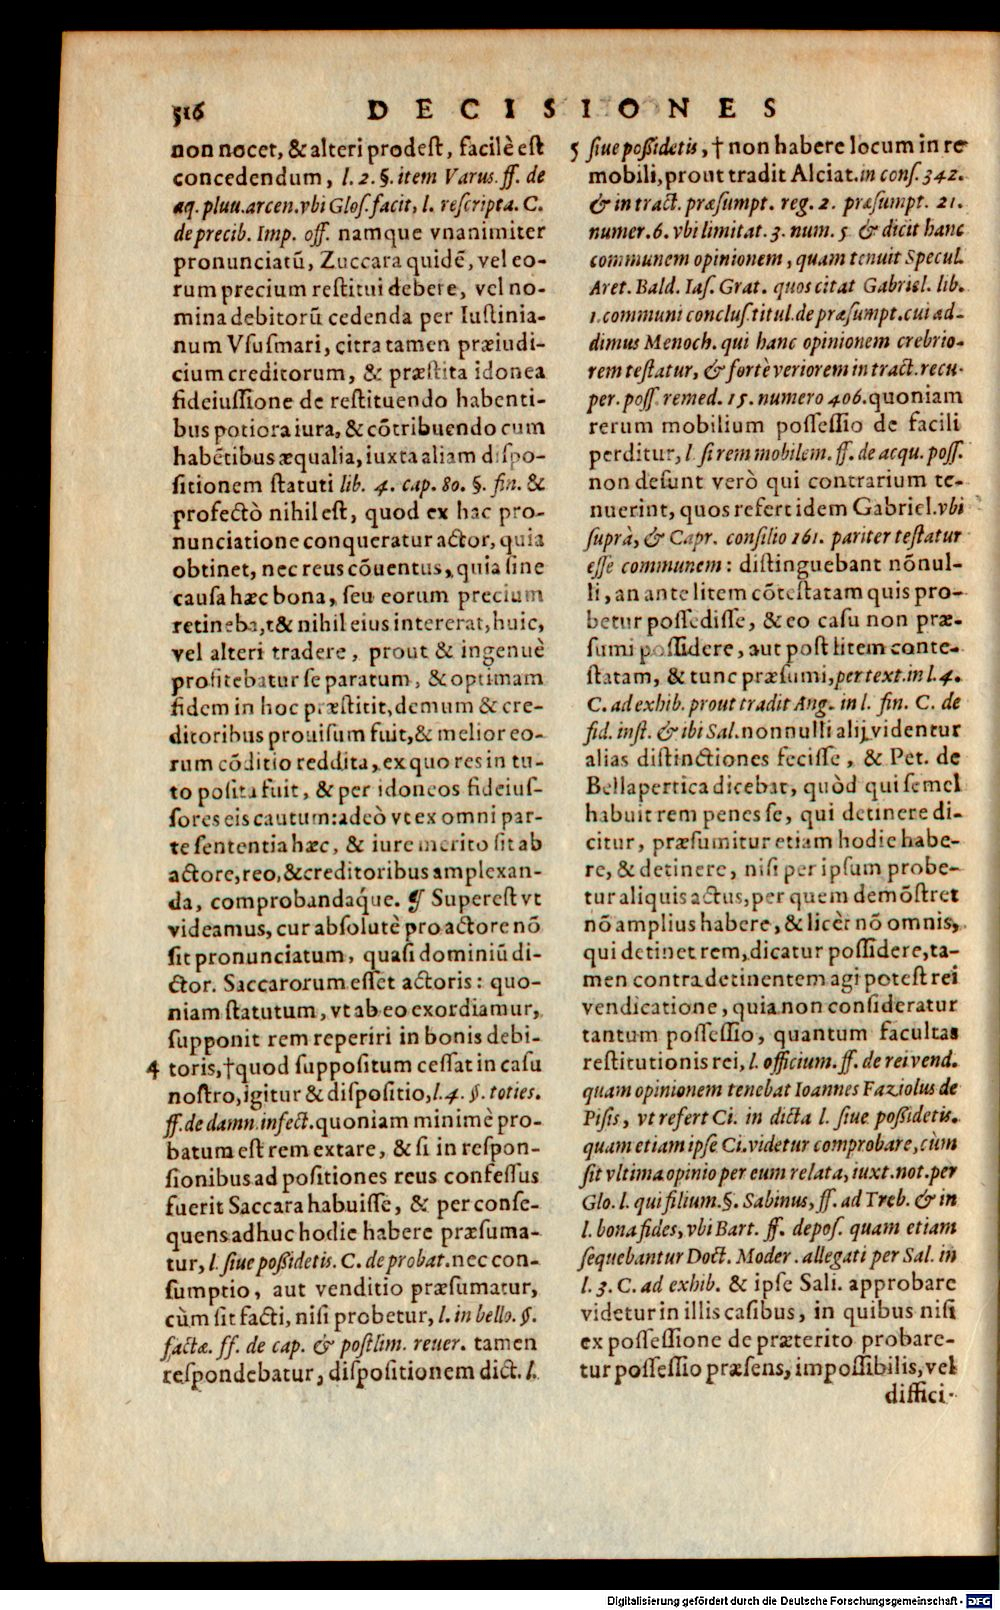 516 DECISIONES
non nocet, & alteri prodest, facilè est
concedendum, l. 2. §. item Varus. ff. de
aq. pluu. arcen. vbi Glos. facit, l. rescripta. C.
de precib. Imp. off. namque vnanimiter
pronunciatū, Zuccara quidē, vel eo-
rum precium restitui debere, vel no-
mina debitorū cedenda per Iustinia-
num Vsusmari, citra tamen præiudi-
cium creditorum, & præstita idonea
fideiussione de restituendo habenti-
bus potiora iura, & cōtribuendo cum
habētibus æqualia, iuxta aliam dispo-
sitionem statuti lib. 4. cap. 80. §. fin. &
profectò nihil est, quod ex hac pro-
nunciatione conqueratur actor, quia
obtinet, nec reus cōuentus, quia sine
causa hæc bona, seu eorum precium
retineba,t & nihil eius intererat, huic,
vel alteri tradere, prout & ingenuè
profitebatur se paratum, & optimam
fidem in hoc præstitit, demum & cre-
ditoribus prouisum fuit, & melior eo-
rum cōditio reddita, ex quo res in tu-
to posita fuit, & per idoneos fideius-
sores eis cautum: adeò vt ex omni par-
te sententia hæc, & iure merito sit ab
actore, reo, & creditoribus amplexan-
da, comprobandaq́ue. ¶ Superest vt
videamus, cur absolutè pro actore nō
sit pronunciatum, quasi dominiū di-
ctor. Saccarorum esset actoris: quo-
niam statutum, vt ab eo exordiamur,
supponit rem reperiri in bonis debi-
4 toris, † quod suppositum cessat in casu
nostro, igitur & dispositio, l. 4. §. toties.
ff. de damn. infect. quoniam minimè pro-
batum est rem extare, & si in respon-
sionibus ad positiones reus confessus
fuerit Saccara habuisse, & per conse-
quens adhuc hodie habere præsuma-
tur, l. siue possidetis. C. de probat. nec con-
sumptio, aut venditio præsumatur,
cùm sit facti, nisi probetur, l. in bello. §.
factæ. ff. de cap. & postlim. reuer. tamen
respondebatur, dispositionem dict. l.
5 siue possidetis, † non habere locum in re
mobili, prout tradit Alciat. in cons. 342.
& in tract. præsumpt. reg. 2. præsumpt. 21.
numer. 6. vbi limitat. 3. num. 5 & dicit hanc
communem opinionem, quam tenuit Specul.
Aret. Bald. Ias. Grat. quos citat Gabriel. lib.
1. communi conclus. titul. de præsumpt. cui ad-
dimus Menoch. qui hanc opinionem crebrio-
rem testatur, & fortè veriorem in tract. recu-
per. poss. remed. 15. numero 406. quoniam
rerum mobilium possessio de facili
perditur, l. si rem mobilem. ff. de acqu. poss.
non desunt verò qui contrarium te-
nuerint, quos refert idem Gabriel. vbi
suprà, & Capr. consilio 161. pariter testatur
esse communem: distinguebant nōnul-
li, an ante litem cōtestatam quis pro-
betur possedisse, & eo casu non præ-
sumi possidere, aut post litem conte-
statam, & tunc præsumi, per text. in l. 4.
C. ad exhib. prout tradit Ang. in l. fin. C. de
fid. inst. & ibi Sal. nonnulli alij videntur
alias distinctiones fecisse, & Pet. de
Bellapertica dicebat, quòd qui semel
habuit rem penes se, qui detinere di-
citur, præsumitur etiam hodie habe-
re, & detinere, nisi per ipsum probe-
tur aliquis actus, per quem demōstret
nō amplius habere, & licèt nō omnis,
qui detinet rem, dicatur possidere, ta-
men contra detinentem agi potest rei
vendicatione, quia non consideratur
tantum possessio, quantum facultas
restitutionis rei, l. officium. ff. de rei vend.
quam opinionem tenebat Ioannes Faziolus de
Pisis, vt refert Ci. in dicta l. siue possidetis.
quam etiam ipse Ci. videtur comprobare, cùm
sit vltima opinio per eum relata, iuxt. not. per
Glo. l. qui filium. §. Sabinus, ff. ad Treb. & in
l. bona fides, vbi Bart. ff. depos. quam etiam
sequebantur Doct. Moder. allegati per Sal. in
l. 3. C. ad exhib. & ipse Sali. approbare
videtur in illis casibus, in quibus nisi
ex possessione de præterito probare-
tur possessio præsens, impossibilis, vel
diffici-
Digitalisierung gefördert durch die Deutsche Forschungsgemeinschaft - DFG